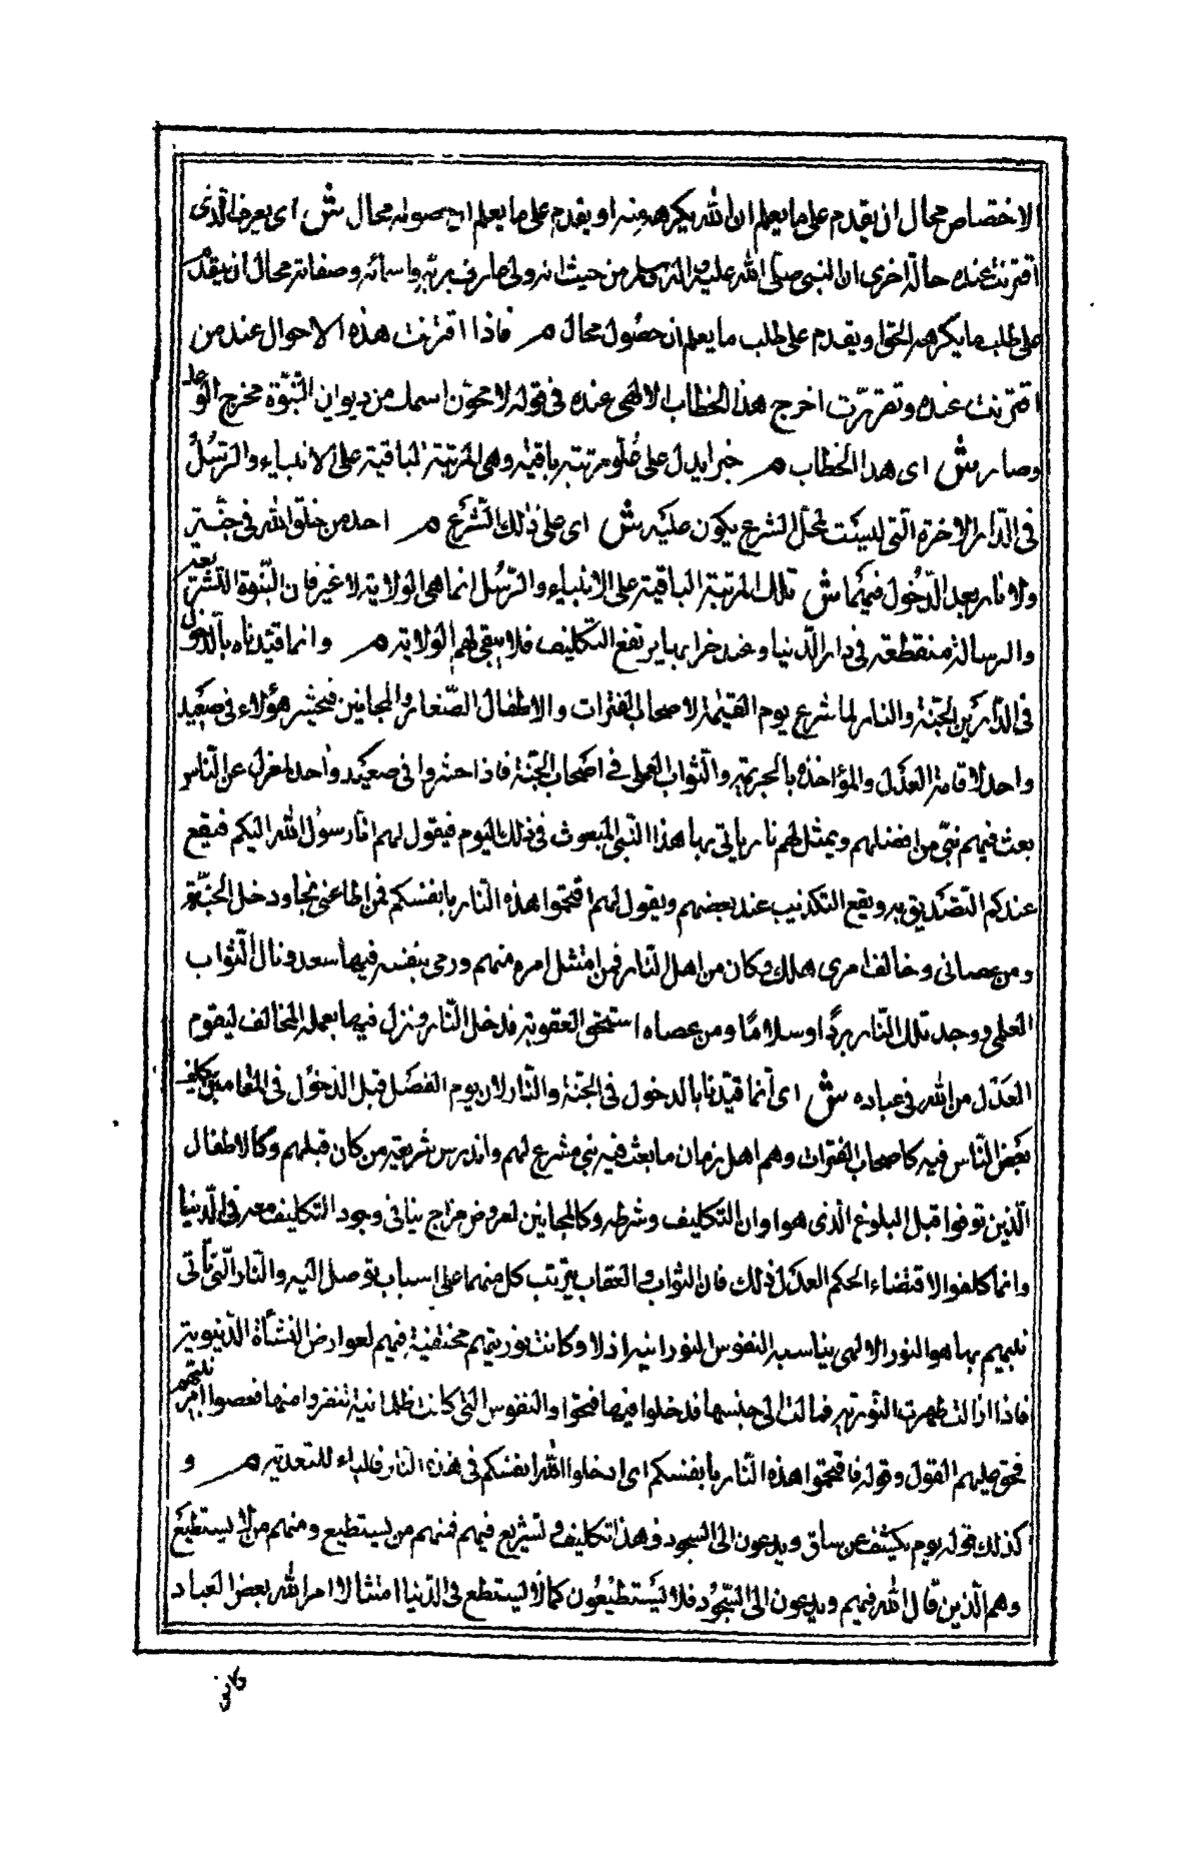 الاختصاص محال ان يقدم على ما يعلم ان الله يكرهه منه او يقدم على ما يعلم ان حصوله محال ش اى يعرف الذى
اقترنت عنده حالة اخرى ان النبى صلى الله عليه واله وسلم من حيث انه ولى عارف بربه واسمائه وصفاته محال ان يقدم
على طلب ما يكرهه الحق او يقدم على طلب ما يعلم ان حصول محال م فاذا اقترنت هذه الاحوال عند من
اقترنت عنده وتقررت اخرج هذا الخطاب الالهى عنده فى قوله لامحون اسمك من ديوان النبوة مخرج الوعد
وصار ش اى هذا الخطاب م خبرا يدل على علو مرتبه باقية وهى المرتبة الباقية على الانبياء والرسل
فى الدار الاخرة التى ليست بمحل لشرع يكون عليه ش اى على ذلك الشرع م احد من خلق الله فى جنة
ولا نار بعد الدخول فيهما ش تلك المرتبة الباقية على الانبياء والرسل انما هى الولاية لا غير فان النبوة التشريعية
والرسالة منقطعة فى دار الدنيا وعند خرابها يرتفع التكليف فلا يبقى لهم الا الولاية م وانما قيدناه بالدخول
فى الدارين الجنة والنار لما شرع يوم القيمة لاصحاب الفترات والاطفال الصغار والمجانين فيحشر هؤلاء فى صعيد
واحد لاقامة العدل والمؤاخذة بالجريمة والثواب العملى فى اصحاب الجنة فاذا حشروا فى صعيد واحد بمعزل عن الناس
بعث فيهم نبى من افضلهم ويمثل لهم نار ياتى بها هذا النبى المبعوث فى ذلك اليوم فيقول لهم انا رسول الله اليكم فيقع
عندكم التصديق به ويقع التكذيب عند بعضهم ويقول لهم اقتحموا هذه النار بانفسكم فمن اطاعنى نجا ودخل الجنة
ومن عصانى وخالف امرى هلك وكان من اهل النار فمن امتثل امره منهم ورمى بنفسه فيها سعد ونال الثواب
العملى ووجد تلك النار بردا وسلاما ومن عصاه استحق العقوبة فدخل النار ونزل فيها بعمله المخالف ليقوم
العدل من الله فى عباده ش اى انما قيدنا بالدخول فى الجنة والنار لان يوم الفصل قبل الدخول فى المقامين يكلف
بعض الناس فيه كاصحاب الفترات وهم اهل زمان ما بعث فيه نبى مشرع لهم واندرس شريعة من كان قبلهم وكالاطفال
الذين توفوا قبل البلوغ الذى هو اوان التكليف وشرطه وكالمجانين لعروض مزاج ينافى وجود التكليف معه فى الدنيا
وانما كلفوا لاقتضاء الحكم العدل ذلك فان الثواب والعقاب يترتب كل منهما على اسباب توصل اليه والنار التى ياتى
نبيهم بها هو النور الالهى يناسبه النفوس النورانية اذلا وكانت نوريتهم مختفية فيهم لعوارض النشأة الدنيوية
فاذا زالت ظهرت النورية فمالت الى جنسها فدخلوا فيها فنجوا والنفوس التى كانت ظلمانية تنفروا منها فعصوا امر نبيهم
فحق عليهم القول وقوله فاقتحموا هذه النار بانفسكم اى ادخلوا انفسكم فى هذه النار فالباء للتعدية م و
كذلك قوله يوم يكشف عن ساق ويدعون الى السجود فهذا تكليف وتشريع فيهم فمنهم من يستطيع ومنهم من لا يستطيع
وهم الذين قال الله فيهم ويدعون الى السجود فلا يستطيعون كما لا يستطع فى الدنيا امتثالا امر الله بعض العباد